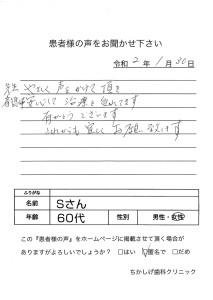 患者様の声をお聞かせ下さい
令和 2 年 1 月 30 日
先生 やさしく 声を かけて 頂き
安心して 治療を 受けれてます
有がとうございます
これからも 宜しく お願い致します
ふりがな
名前 Sさん
年齢 60代 性別 男性・女性
この『患者様の声』をホームページに掲載させて頂く場合が
ありますがよろしいでしょうか? □はい ☑匿名で □だめ
ちかしげ歯科クリニック